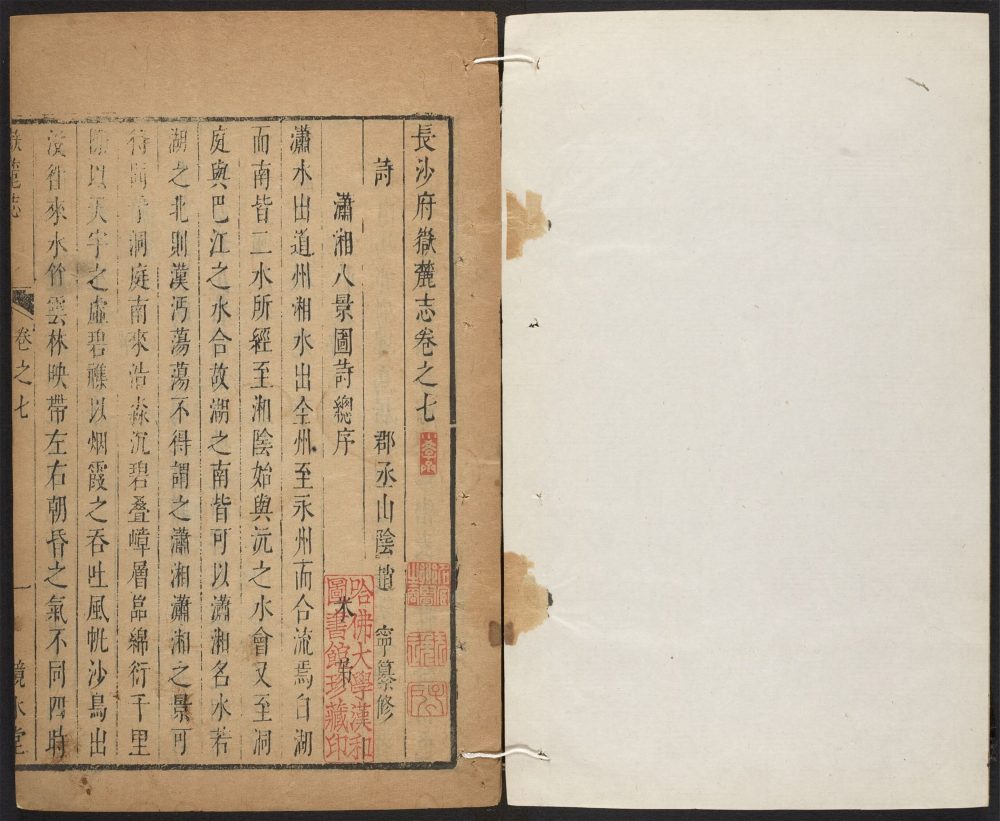 長沙府嶽麓志卷之七
詩 郡丞山陰趙 寧纂修
瀟湘八景圖詩總序 米芾
瀟水出道州湘水出全州至永州而合流焉自湖
而南皆二水所經至湘陰始與沅之水會又至洞
庭與巴江之水合故湖之南皆可以瀟湘名水若
湖之北則漢沔蕩蕩不得謂之瀟湘瀟湘之景可
得聞乎洞庭南來浩淼沉碧疊嶂層嵒綿衍千里
際以天宇之虛碧襍以烟霞之吞吐風帆沙鳥出
沒徃來水竹雲林映帶左右朝昏之氣不同四時
嶽麓志 卷之七 一 鏡水堂
哈佛大學漢和
圖書館珍藏印